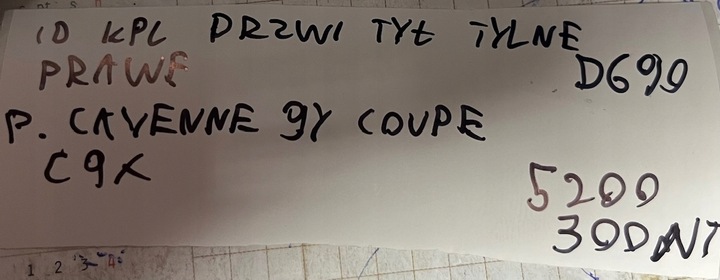 ID KPL DRZWI TYŁ TYLNE
PRAWE
D690
P. CAYENNE 9Y COUPE
C9X
5200
300 NT
1 2 3 4